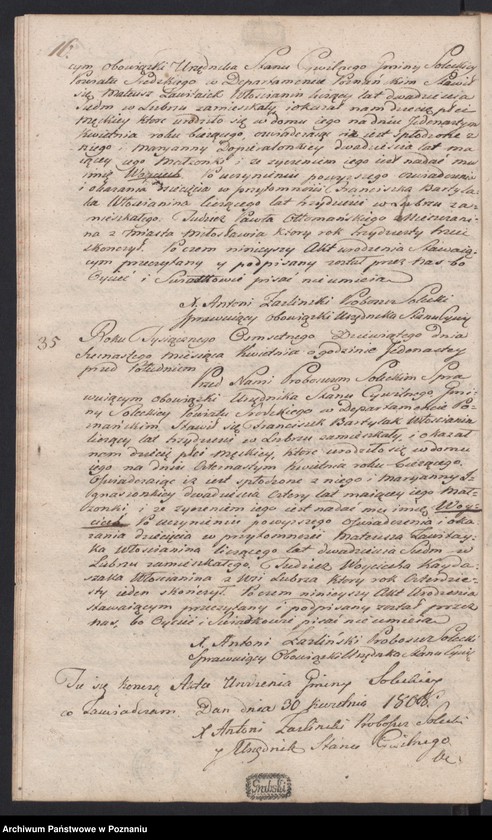 16.
cym obowiązki Urzędnika Stanu Cywilnego Gminy Soleckiey
Powiatu Sredzkiego w Departamencie Poznanskim Stawił
się Mateusz Ławniczek Włoscianin liczący lat dwadziescia
siedm w Lubrzu zamieszkały, i okazał nam dziecię płci
męskiey ktore urodziło się w domu jego na dniu Jedenastym
kwietnia roku bieżącego, oswiadczając iż iest spłodzone z
niego i Maryanny dwadziescia lat ma
iącey iego Małżonki i że zyczeniem iego iest nadać mu
imię Woyciech Po uczynieniu powyzszego oswiadczenia
i okazania dziecięcia w przytomności Franciszka Bartyla
ka Włoscianina liczącego lat trzydziesci w Lubrzu za
mieszkałego. Tudziez Pawła Ottomańskiego Mieszczani
na z miasta Miłosławia który rok trzydziesty trzeci
skonczył. Po czem ninieyszy Akt urodzenia Stawaią
cym przeczytany y podpisany został przez nas bo
Oyciec i Swiadkowie pisać nie umieią
X. Antoni Zarlinski Proboszcz Solecki
Sprawuiący obowiązki Urzędnika Stanu Cywil
35 Roku Tysiącznego Osmsetnego Dziewiątego dnia
Siemastego miesiąca Kwietnia o godzinie Jedenastey
przed Południem
Przed Nami Proboszczem Soleckim Spra
wuiącym obowiązki Urzędnika Stanu Cywilnego Gmi
ny Soleckiey Powiatu Srodzkiego w Departamencie Po
znańskim, Stawił się Franciszek Bartylak Włoscianin
liczący lat trzydziesci w Lubrzu zamieszkały, i okazał
nam dziecię płci męskiey, ktore urodziło się w domu
iego na dniu Czternastym kwietnia roku bieżącego.
Oswiadczając iż iest spłodzone z niego i Maryanny I
gnasionkiey dwadziescia cztery lat maiącey iego Mał
żonki, i że zyczeniem iego iest nadać mu imię Woy
ciech Po uczynieniu powyzszego Oswiadczenia i oka
zania dziecięcia w przytomności Mateusza Ławniczy
ka Włoscianina liczącego lat dwadziescia siedm w
Lubrzu zamieszkałego, Tudziez Woyciecha Kayda
szaka Włoscianina z Wsi Lubrza ktory rok Czterdzie
sty ieden skonczył. Po czem ninieyszy Akt Urodzenia
Stawaiącym przeczytany i podpisany został przez
nas, bo Oyciec i Swiadkowie pisać nie umieią
X. Antoni Zarlinski Proboszcz Solecki
Sprawuiący Obowiązki Urzędnika Stanu Cywil
Tu się konczą Akta Urodzenia Gminy Soleckiey
co zaswiadczam Dan dnia 30 kwietnia 1808.
X Antoni Zarlinski Proboszcz Solecki
y Urzędnik Stanu Cywilnego
Grabski
Archiwum Państwowe w Poznaniu